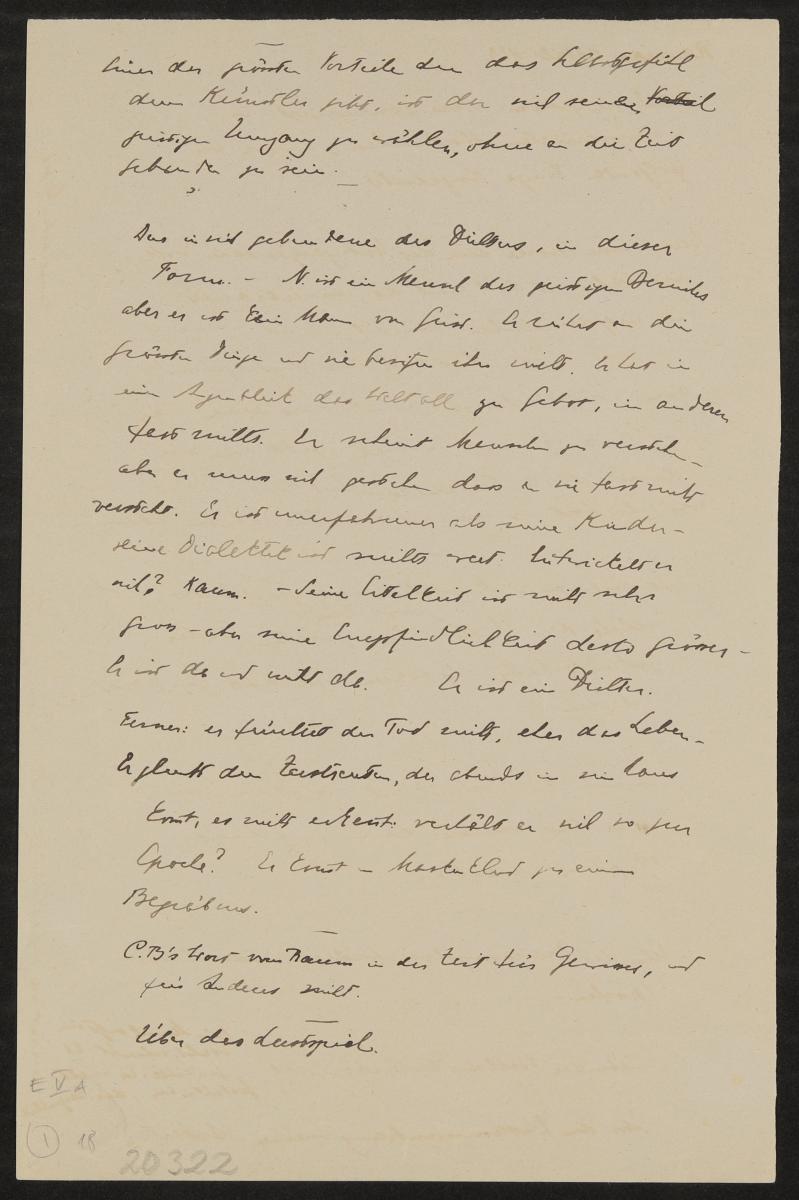 Einer der grössten Vorteile den das Selbstgefühl
dem Künstler gibt, ist der sich seinen Vorteil
geistigen Umgang zu wählen, ohne an die Zeit
gebunden zu sein.
Das in sich gebundene des Dichters, in dieser
Form. – N. ist ein Mensch des geistigen Bereiches
aber er ist kein Mann von Geist. Er rührt an die
grössten Dinge und sie besitzen ihn nicht. Er hat in
einem Augenblick das Weltall zu Gebot, im anderen
fast nichts. Er scheint Menschen zu verstehn –
aber er muss sich gestehen dass er sie fast nicht
versteht. Er ist unerfahrener als seine Kinder –
seine Dialektik ist nichts wert. Entwickelt er
sich? Kaum. – Seine Eitelkeit ist nicht sehr
gross – aber seine Empfindlichkeit desto grösser –
Er ist da und nicht da. Er ist ein Dichter.
Ferner: er fürchtet den Tod nicht, eher das Leben –
Er gleicht dem Zerstreuten, der abends in sein Haus
kommt, es nicht erkennt: verhält er sich so zur
Epoche? Er kommt im Maskenkleid zu einem
Begräbnis.
C.B's Wort vom Raum in der Zeit für Gewisses, und
für Anderes nicht.
Über das Lustspiel.
E V A
1 18
20322